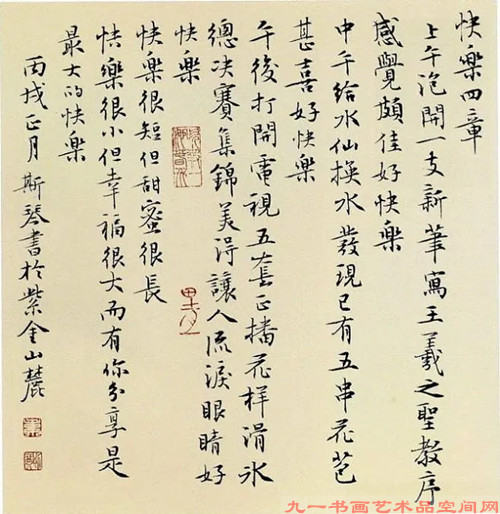 快樂四章
上午泡開一支新筆寫王羲之聖教序
感覺頗佳好快樂
中午給水仙換水發現已有五串花苞
甚喜好快樂
午後打開電視五套正播花样滑冰
總决賽集錦美得讓人流淚眼睛好
快樂
快樂很短但甜蜜很長
快樂很小但幸福很大而有你分享是
最大的快樂
丙戌正月斯琴書於紫金山麓
九一书画艺术品空间网